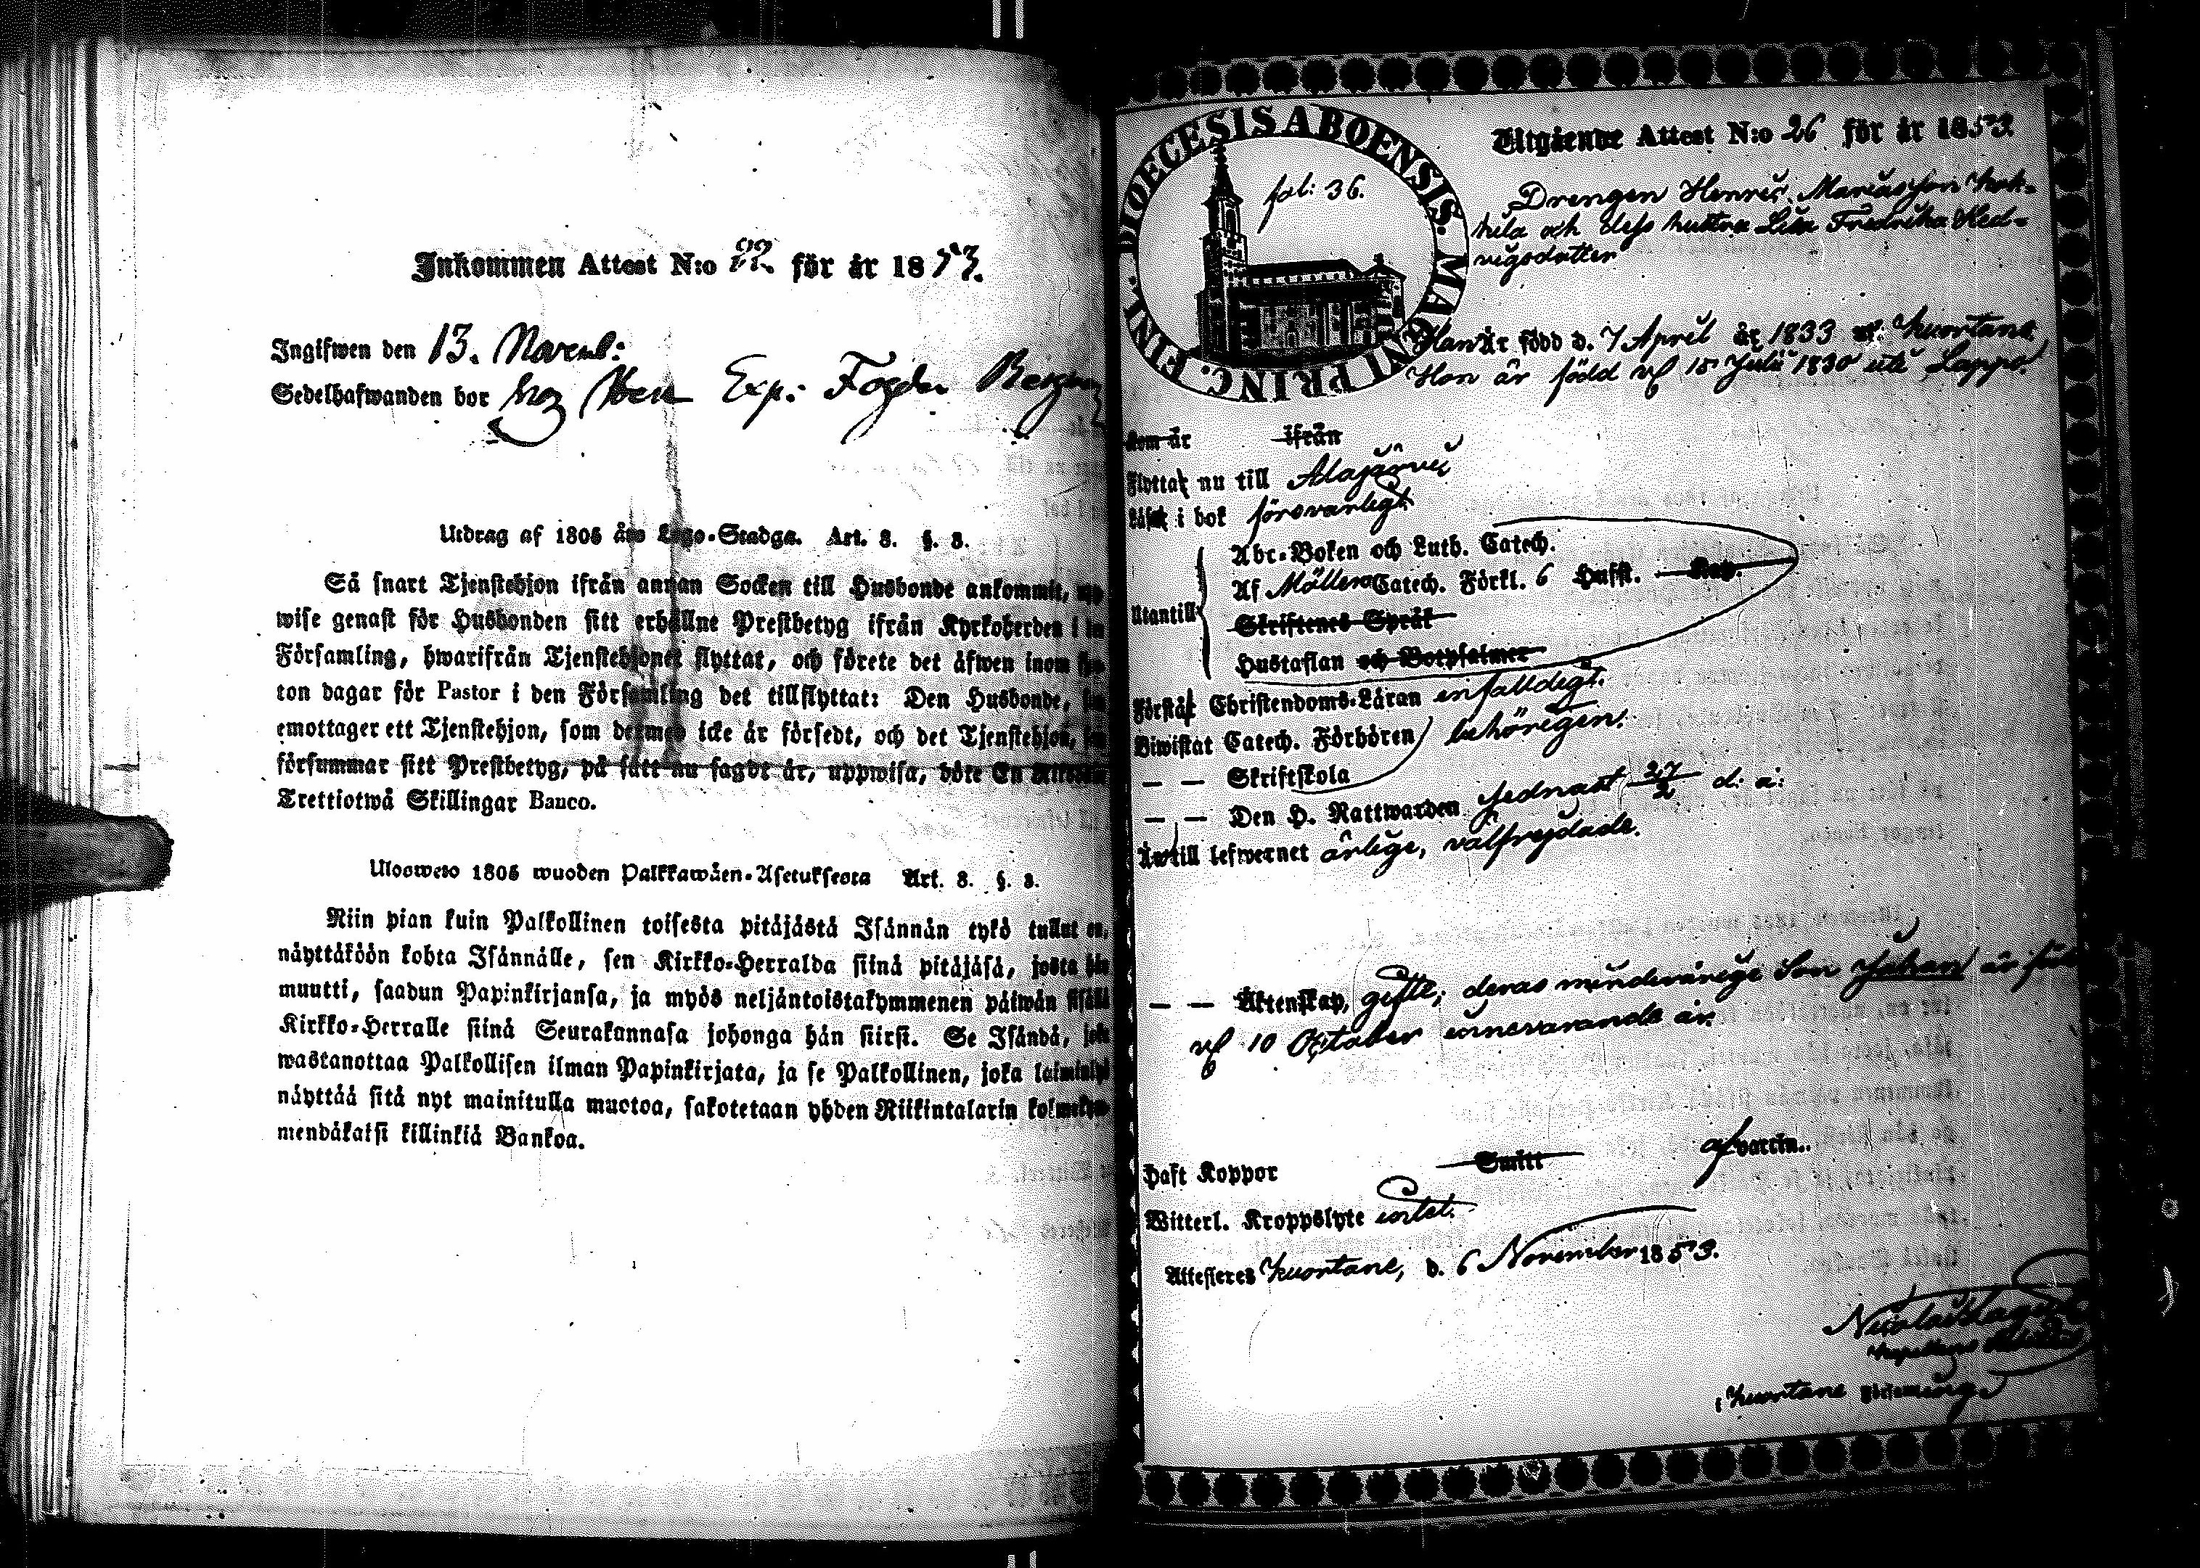 Inkommen Attest N:o 22 för år 1853.
Ingifwen den 13. Novemb:
Sedelhafwanden bor hoz Herr Exp: Fogden
Utdrag af 1805 års Lego-Stadga. Art. 3. §. 3.
Så snart Tjenstehjon ifrån annan Socken till Husbonde ankommit, upp
wise genast för Husbonden sitt erhållne Prestbetyg ifrån Kyrkoherden i
Församling, hwarifrån Tjenstehjonet flyttat, och förete det äfwen inom
ton dagar för Pastor i den Församling det tillflyttat: Den Husbonde,
emottager ett Tjenstehjon, som dermed icke är försedt, och det Tjenstehjon,
försummar sitt Prestbetyg, på sätt nu sagdt är, uppwisa, böte En Riksdaler
Trettiotwå Skillingar Banco.
Ulosweto 1805 wuoden Palkkawäen-Asetuksesta Art. 3. §. 3.
Niin pian kuin Palkollinen toisesta pitäjästä Isännän tykö tullut on,
näyttäköön kohta Isännälle, sen Kirkko-Herralda siinä pitäjäsä, josta hän
muutti, saadun Papinkirjansa, ja myös neljäntoistakymmenen päiwän sisällä
Kirkko-Herralle siinä Seurakunnasa johonga hän siirsi. Se Isändä, joka
wastanottaa Palkollisen ilman Papinkirjata, ja se Palkollinen, joka laiminlyö
näyttää sitä nyt mainitulla muotoa, sakotetaan yhden Riikintalarin kolmekym-
mendäkaksi killinkiä Bankoa.
DIOECESIS ABOENSIS. MAGNI PRINC. FINL.
fol: 36.
Utgående Attest N:o 26 för år 1853.
Drengen Henric Mariasson
och dess hustru Lisa Fredrika Hed-
vigsdotter
Han är född d. 7 April år 1833 uti Kuortane.
Hon är född d 15 Julii 1830 uti Lappo.
kom är ifrån
Flyttat nu till Alajärvi
Läst i bok försvarligt
Utantill
Abc-Boken och Luth. Catech.
Af Möllers Catech. Förkl. 6 Hufst. Kap.
Skriftenes Språk
Hustaflan och Botpsalmer
Förstår Christendoms-Läran enfalldigt.
Biwistat Catech. Förhören behörigen.
— — Skriftskola
— — Den H. Nattwarden sednast 27/2 d: å:
Är till lefwernet ärlige, välfrejdade.
— — Äktenskap, gifte; deras minderårige Son Johan är född
d 10 October innevarande år.
Haft Koppor Smitt af vaccin.
Witterl. Kroppslyte intet.
Attesteres Kuortane, d. 6 November 1853.
Kuortane